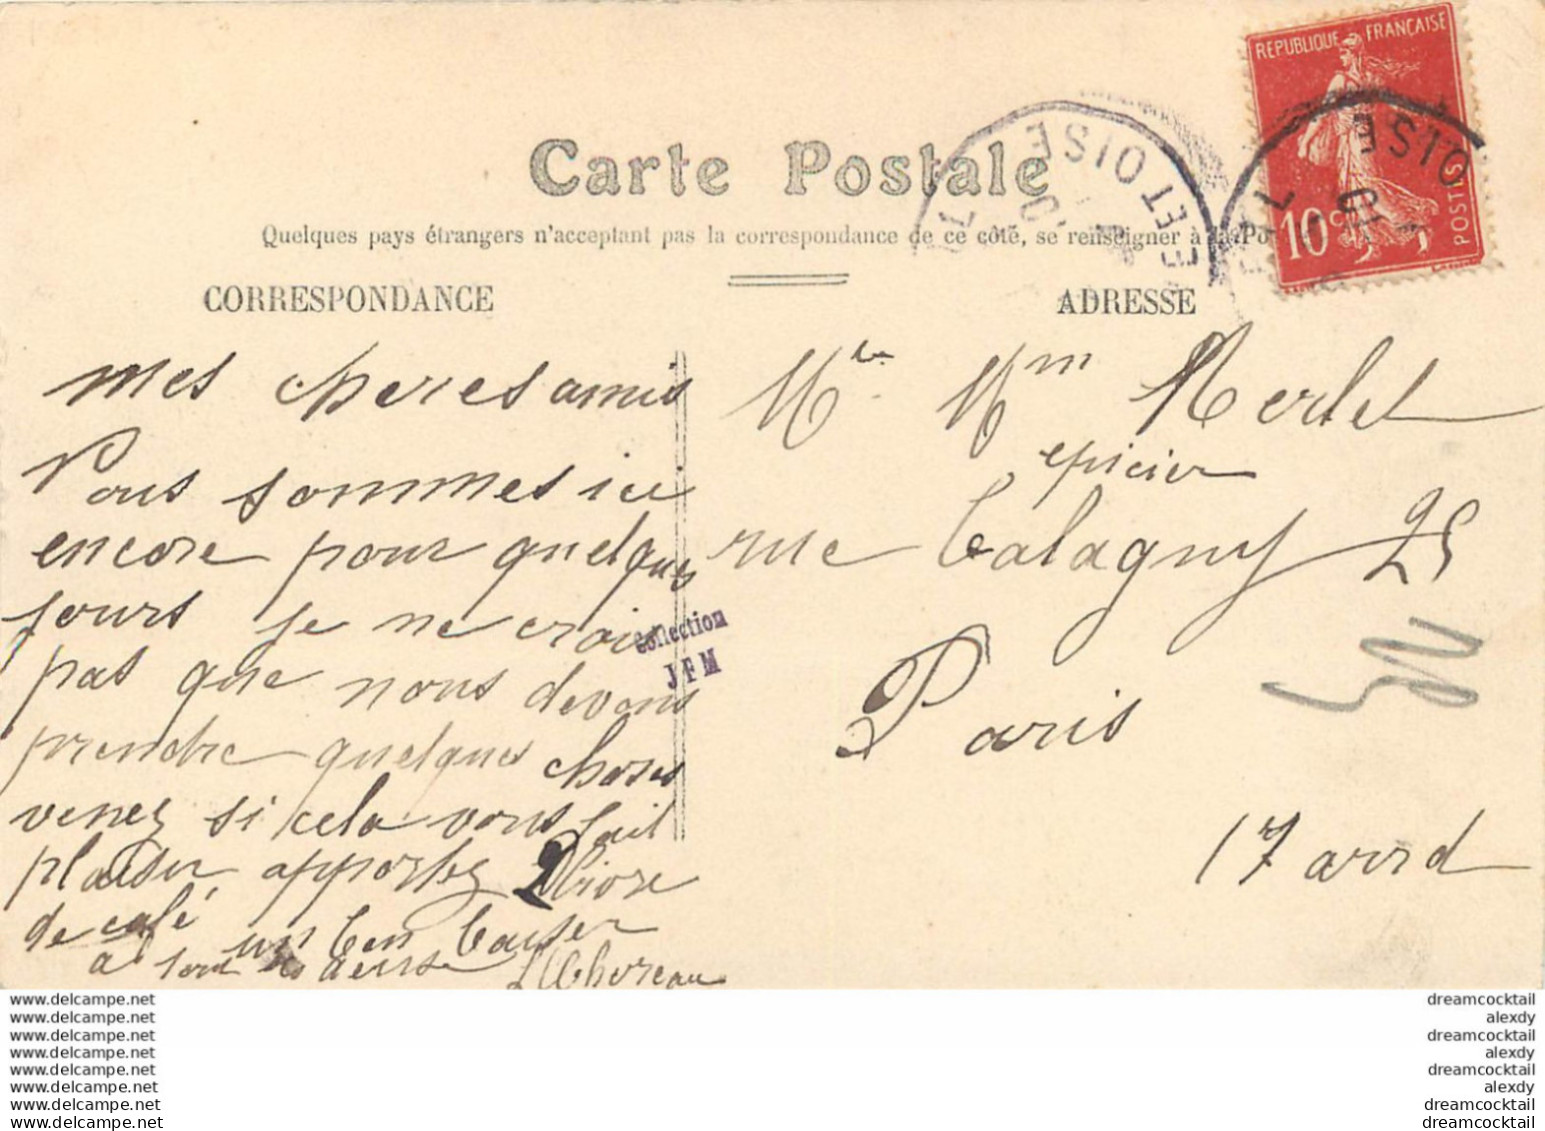 REPUBLIQUE FRANÇAISE
10 c
POSTES
ET OISE
OISE
Carte Postale
Quelques pays étrangers n'acceptant pas la correspondance de ce côté, se renseigner à la Po
CORRESPONDANCE
ADRESSE
mes cheres amis
Nous sommes ici
encore pour quelques
jours je ne crois
pas que nous devons
prendre quelques choses
venez si cela vous fait
plaisir apportez 2 livre
de café un bon baiser
a tous les deux
Thoreau
Mr Mm Merlet
epicier
rue Balagny 25
Paris
17 arrd
Collection
JFM
www.delcampe.net
www.delcampe.net
www.delcampe.net
www.delcampe.net
www.delcampe.net
www.delcampe.net
www.delcampe.net
www.delcampe.net
dreamcocktail
alexdy
dreamcocktail
alexdy
dreamcocktail
alexdy
dreamcocktail
dreamcocktail